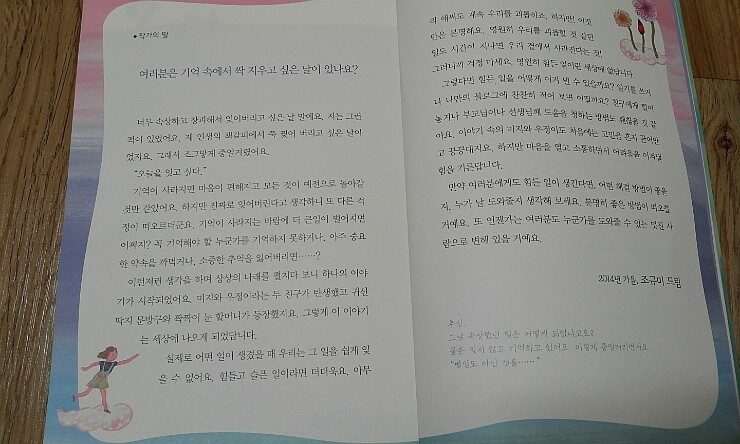 작가의 말
여러분은 기억 속에서 싹 지우고 싶은 날이 있나요?
너무 속상하고 창피해서 잊어버리고 싶은 날 말예요. 저는 그런
적이 있었어요. 제 인생의 책갈피에서 쭉 찢어 버리고 싶은 날이
었지요. 그래서 조그맣게 중얼거렸어요.
"오늘을 잊고 싶다."
기억이 사라지면 마음이 편해지고 모든 것이 예전으로 돌아갈
것만 같았어요. 하지만 진짜로 잊어버린다고 생각하니 또 다른 걱
정이 떠오르더군요. 기억이 사라지는 바람에 더 큰일이 벌어지면
어쩌지? 꼭 기억해야 할 누군가를 기억하지 못하거나, 아주 중요
한 약속을 까먹거나, 소중한 추억을 잃어버리면……?
이런저런 생각을 하며 상상의 나래를 펼치다 보니 하나의 이야
기가 시작되었어요. 미지와 우정이라는 두 친구가 탄생했고 귀신
딱지 문방구와 짝짝이 눈 할머니가 등장했지요. 그렇게 이 이야기
는 세상에 나오게 되었답니다.
실제로 어떤 일이 생겼을 때 우리는 그 일을 쉽게 잊
을 수 없어요. 힘들고 슬픈 일이라면 더더욱요. 아무
리 애써도 계속 우리를 괴롭히죠. 하지만 이것
만은 분명해요. 영원히 우리를 괴롭힐 것 같던
일도 시간이 지나면 우리 곁에서 사라진다는 것!
그러니까 걱정 마세요. 영원히 힘든 일이란 세상에 없답니다.
그렇다면 힘든 일을 어떻게 이겨 낼 수 있을까요? 일기를 쓰거
나 나만의 블로그에 찬찬히 적어 보면 어떨까요? 친구에게 털어
놓거나 부모님이나 선생님께 도움을 청하는 방법도 괜찮을 것 같
아요. 이야기 속의 미지와 우정이도 처음에는 고민을 혼자 끌어안
고 끙끙대지요. 하지만 마음을 열고 소통하면서 어려움을 이겨낼
힘을 기른답니다.
만약 여러분에게도 힘든 일이 생긴다면, 어떤 해결 방법이 좋을
지, 누가 날 도와줄지 생각해 보세요. 분명히 좋은 방법이 떠오를
거예요. 또 언젠가는 여러분도 누군가를 도와줄 수 있는 멋진 사
람으로 변해 있을 거예요.
2014년 가을, 조규미 드림
추신.
그날 속상했던 일은 어떻게 되었냐고요?
물론 잊지 않고 기억하고 있어요. 이렇게 중얼거리면서요.
"별일도 아닌 것을……"